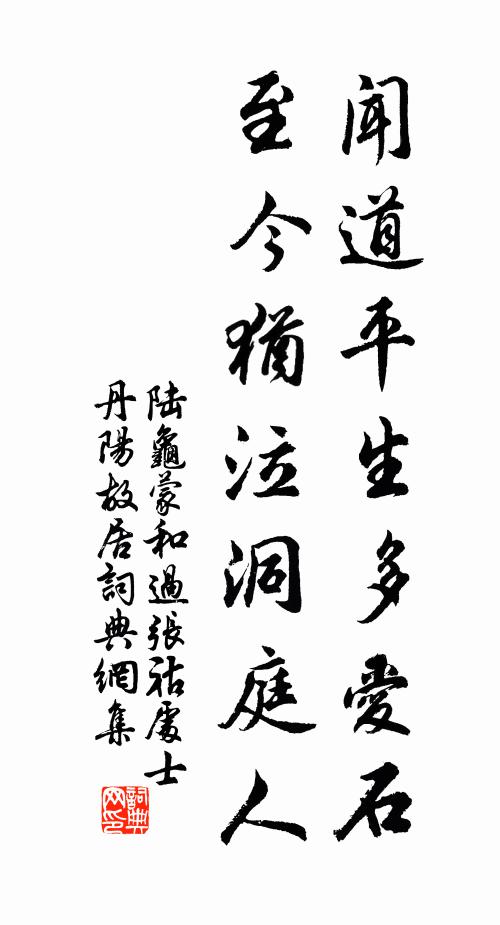 聞道平生多愛石
至今猶泣洞庭人
陆龜蒙和過張祜處士
丹陽故居詞典網集
詞典
网印